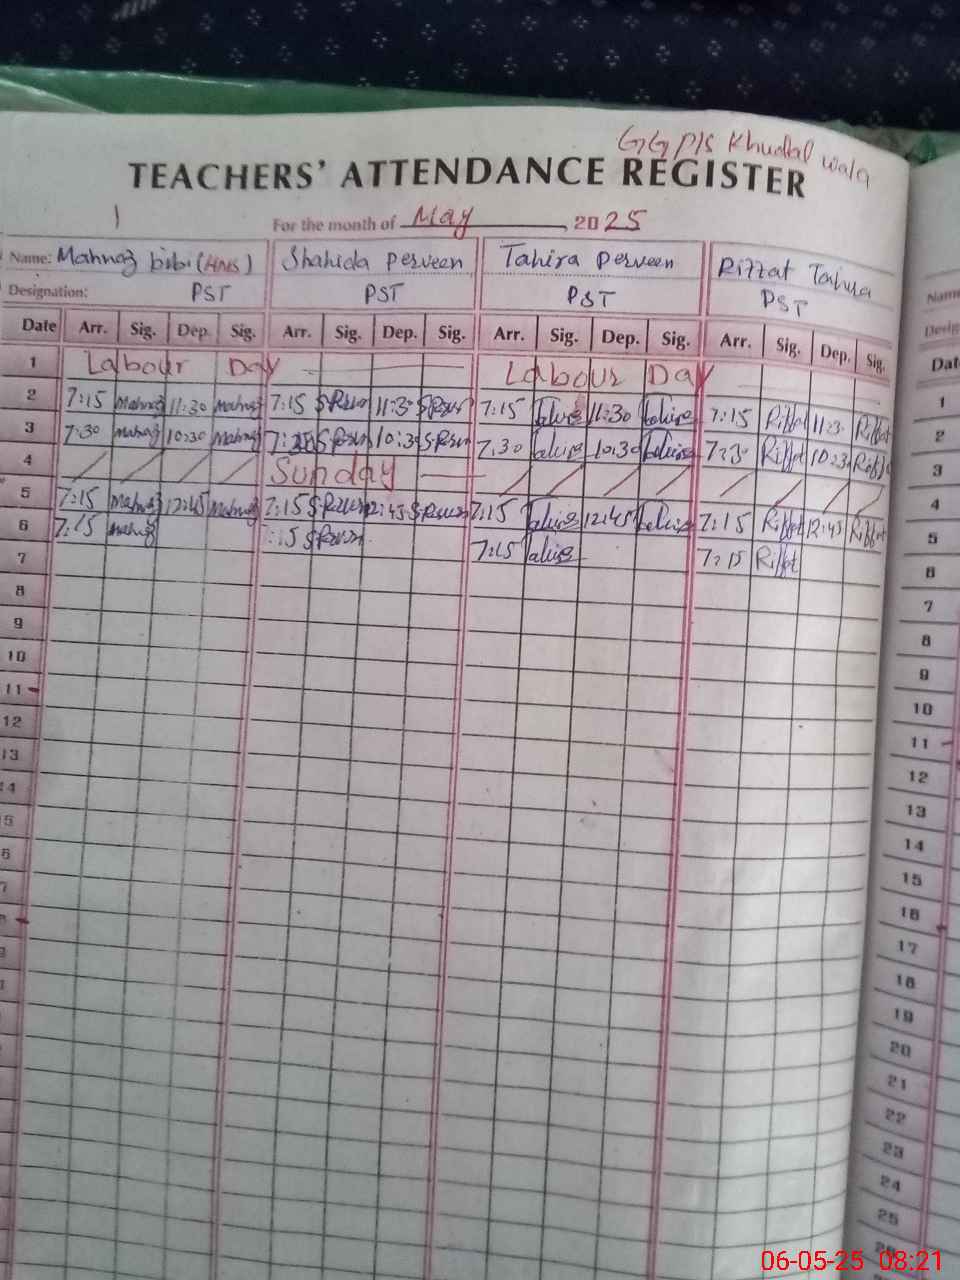 GGP/S Khudal wala
TEACHERS' ATTENDANCE REGISTER
For the month of May 2025
Name: Mahnaz bibi (HNS) Shahida Perveen Tahira Perveen Riffat Tahira
Designation: PST PST PST PST
Date Arr. Sig. Dep. Sig. Arr. Sig. Dep. Sig. Arr. Sig. Dep. Sig. Arr. Sig. Dep. Sig.
1 Labour Day Labour Day
2 7:15 Mahnaz 11:30 Mahnaz 7:15 11:30 7:15 11:30 7:15 Riffat 11:30 Riffat
3 7:30 Mahnaz 10:30 Mahnaz 10:30 7:30 10:30 7:30 Riffat 10:30 Riffat
4 Sunday
5 7:15 Mahnaz 12:45 Mahnaz 7:15 12:45 7:15 12:45 7:15 Riffat 12:45 Riffat
6 7:15 Mahnaz :15 7:15 7:15 Riffat
7
8
9
10
11
12
13
Name
Date
1
2
3
4
5
6
7
8
9
10
11
12
13
14
15
16
17
18
19
20
21
22
23
24
25
06-05-25 08:21